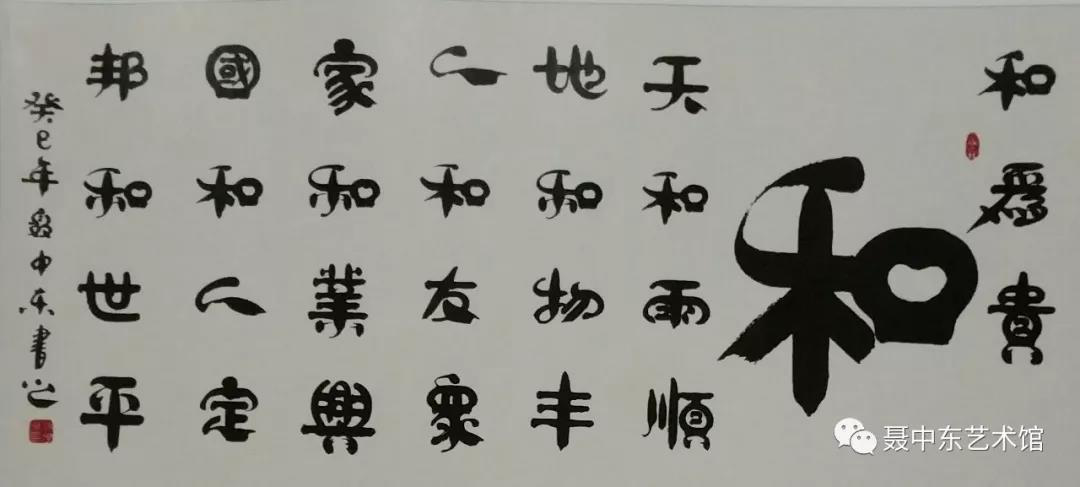 和為貴
和
天和雨順
地和物丰
人和友眾
家和業興
國和人定
邦和世平
癸巳年聂中东書
聂中东艺术馆